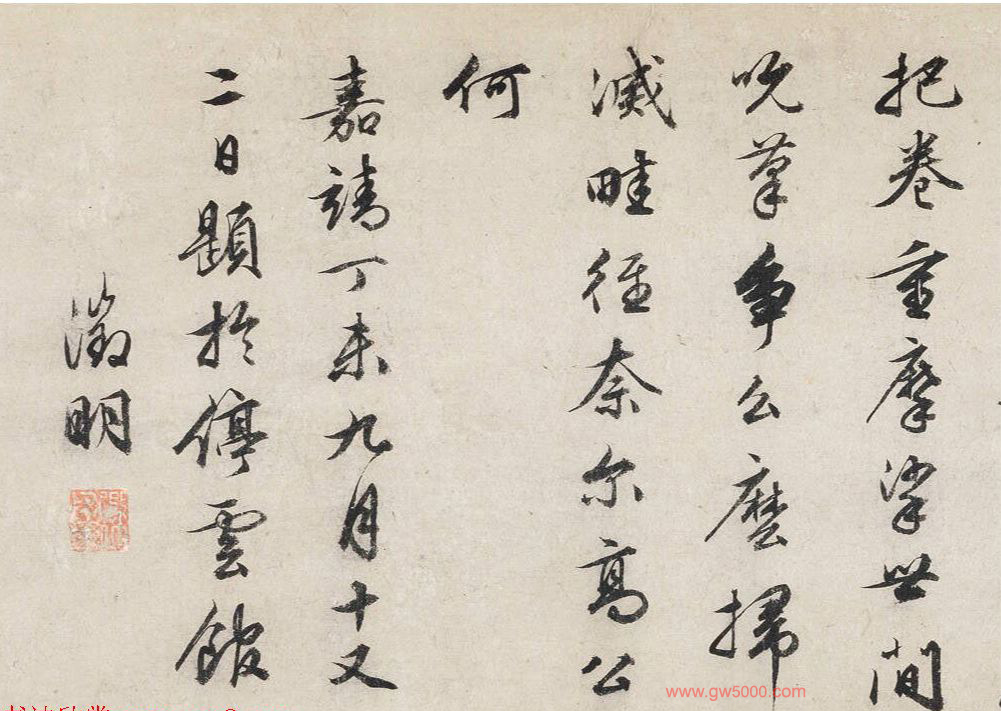 把卷重摩挲世间
吮筆争么麽掃
滅畦徑奈尔高公
何
嘉靖丁未九月十又
二日題於停雲館
徵明
www.gw5000.com